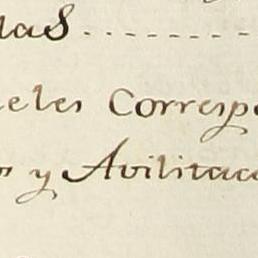 las
eles Corresp
s y Avilitac